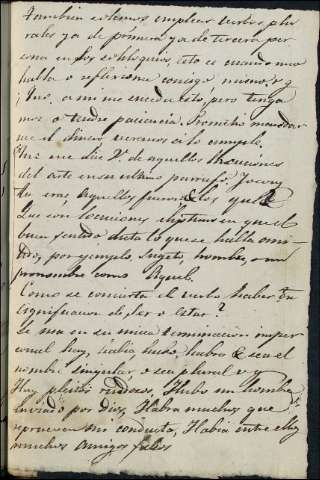 Tambien solemos emplear verbos plu
rales ya de primera ya de tercera per
sona en los soliloquios, esto es cuando uno
habla o reflexiona consigo mismo, v. g
¡Que, a mi me suceda esto, pero tenga
mos o tendre paciencia. Prometió mandar
me el dinero veremos si lo cumple.
Que me dice V. de aquellas locuciones
del arte en su ultimo parrafo,
tu eras Aquellos fueron los que
Que son locuciones elipticas en que el
buen sentido dicta lo que se halla omi
tido, por ejemplo, Sugeto, hombre, o un
pronombre como Aquel.
Como se concierta el verbo haber en
significacion de ser o estar?
Se usa en su unica terminacion imper
sonal hay, habia hubo, habra &c sea el
nombre singular, o sea plural v. g
Hay pleitos ruidosos, Hubo un hombre
enviado por Dios, Habra muchos que
reprueven mi conducta, Habia entre ellos
muchos amigos falsos